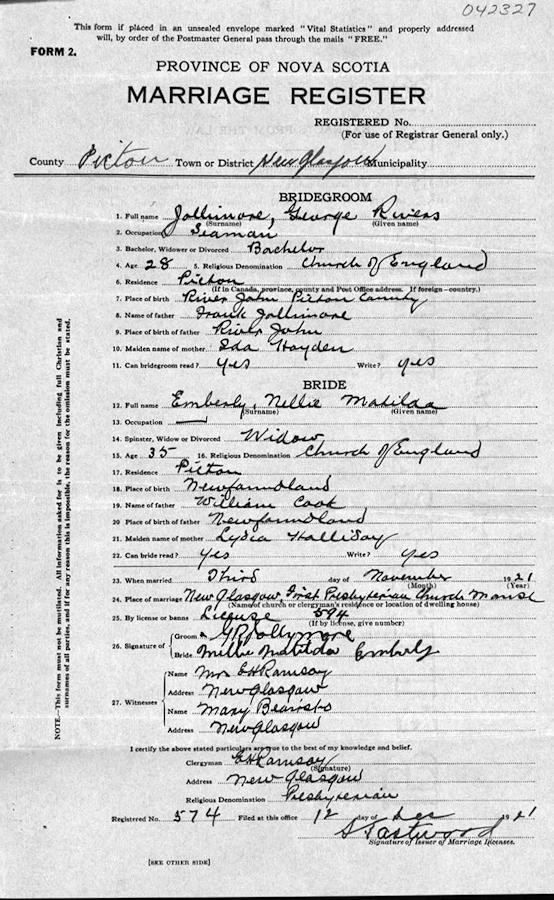 042327
This form if placed in an unsealed envelope marked "Vital Statistics" and properly addressed
will, by order of the Postmaster General pass through the mails "FREE."
FORM 2.
PROVINCE OF NOVA SCOTIA
MARRIAGE REGISTER
REGISTERED No.
(For use of Registrar General only.)
County Pictou Town or District New Glasgow Municipality
BRIDEGROOM
1. Full name Jollimore, George Rivers
(Surname) (Given name)
2. Occupation Seaman
3. Bachelor, Widower or Divorced Bachelor
4. Age 28 5. Religious Denomination Church of England
6. Residence Pictou
(If in Canada, province, county and Post Office address. If foreign—country.)
7. Place of birth River John Pictou County
8. Name of father Frank Jollimore
9. Place of birth of father River John
10. Maiden name of mother Ida Hayden
11. Can bridegroom read? yes Write? yes
BRIDE
12. Full name Emberly, Nellie Matilda
(Surname) (Given name)
13. Occupation —
14. Spinster, Widow or Divorced Widow
15. Age 35 16. Religious Denomination Church of England
17. Residence Pictou
18. Place of birth Newfoundland
19. Name of father William Cook
20. Place of birth of father Newfoundland
21. Maiden name of mother Lydia Halliday
22. Can bride read? yes Write? yes
23. When married Third day of November 1921
(Month) (Year)
24. Place of marriage New Glasgow, First Presbyterian Church Manse
(Name of church or clergyman's residence or location of dwelling house)
25. By license or banns License 574
(If by license, give number)
26. Signature of Groom G R Jollymore
Bride Millie Matilda Emberly
27. Witnesses Name Mrs E H Ramsay
Address New Glasgow
Name Mary Beairsto
Address New Glasgow
I certify the above stated particulars are true to the best of my knowledge and belief.
Clergyman E H Ramsay
(Signature)
Address New Glasgow
Religious Denomination Presbyterian
Registered No. 574 Filed at this office 12 day of Dec 1921
Eastwood
Signature of Issuer of Marriage Licenses.
[SEE OTHER SIDE]
NOTE—This form must not be mutilated. All information asked for is to be given including full Christian and
surnames of all parties, and if for any reason this is impossible, the reason for the omission must be stated.